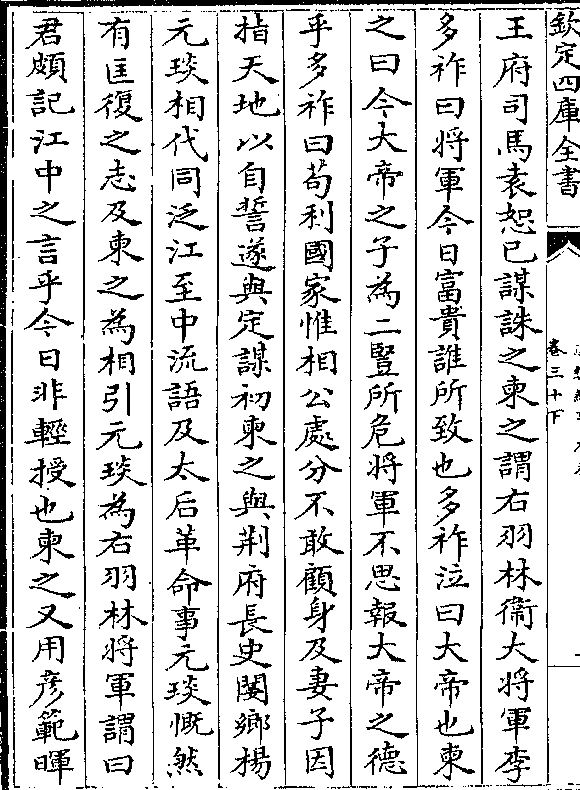 欽定四庫全書
卷三十下
王府司馬袁恕已謀誅之柬之謂右羽林衞大將軍李
多祚曰將軍今日富貴誰所致也多祚泣曰大帝也柬
之曰今大帝之子為二豎所危將軍不思報大帝之德
乎多祚曰苟利國家惟相公處分不敢顧身及妻子因
指天地以自誓遂與定謀初柬之與荆府長史閿鄉楊
元琰相代同泛江至中流語及太后革命事元琰慨然
有匡復之志及柬之為相引元琰為右羽林將軍謂曰
君頗記江中之言乎今日非輕授也柬之又用彦範暉